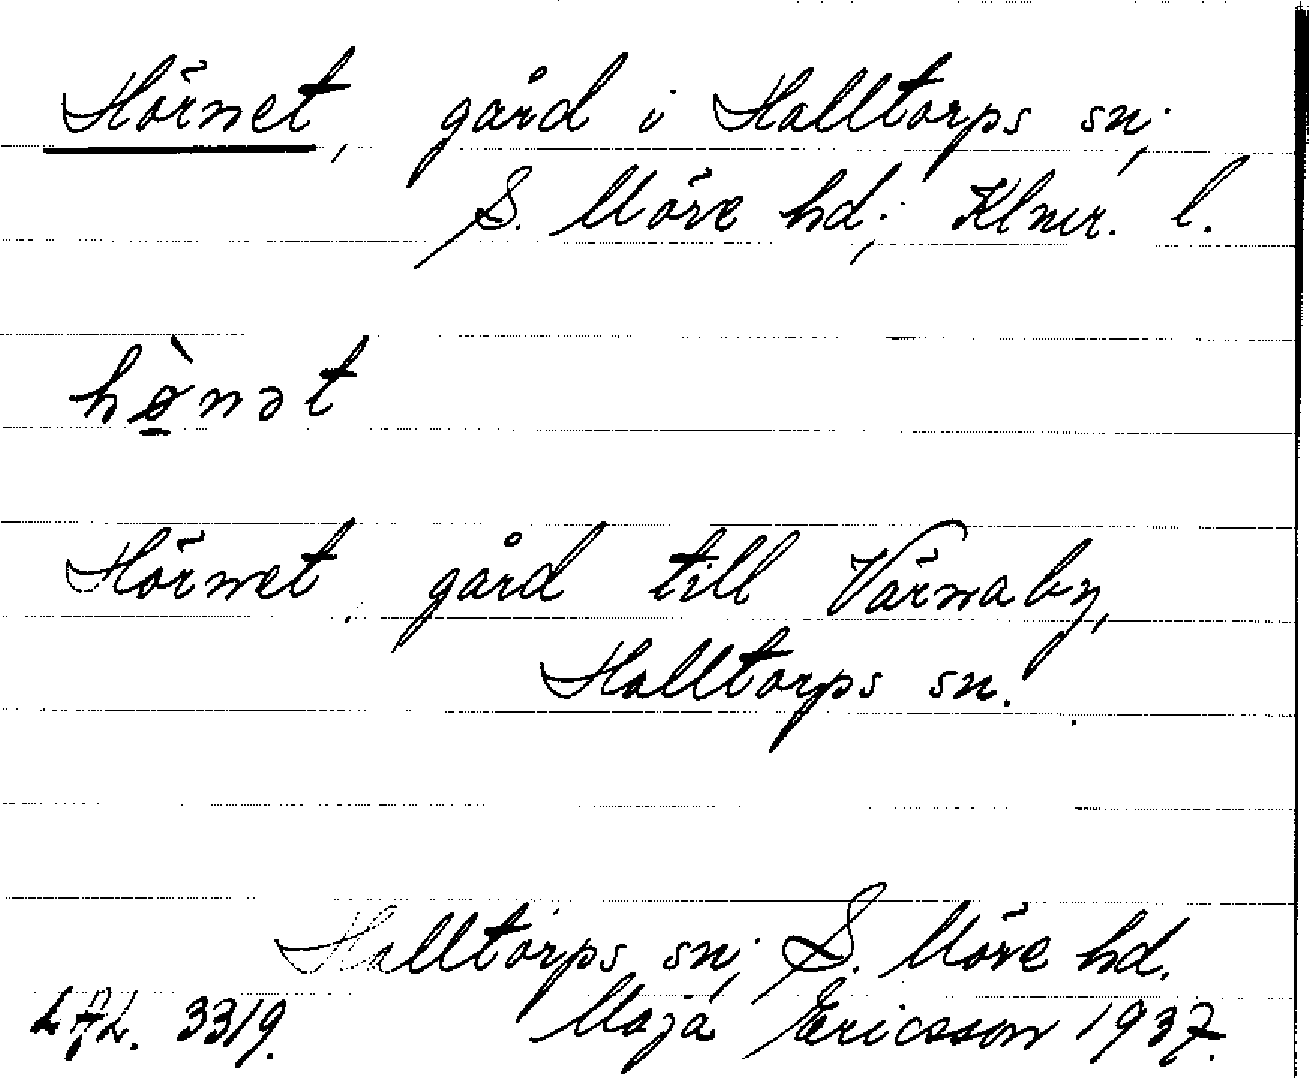 Hörnet, gård i Halltorps sn;
S. Möre hd; Klmr. l.
hø̀nət
Hörnet, gård till Värnaby,
Halltorps sn.
Halltorps sn; S. Möre hd.
3319. Maja Ericsson 1937.